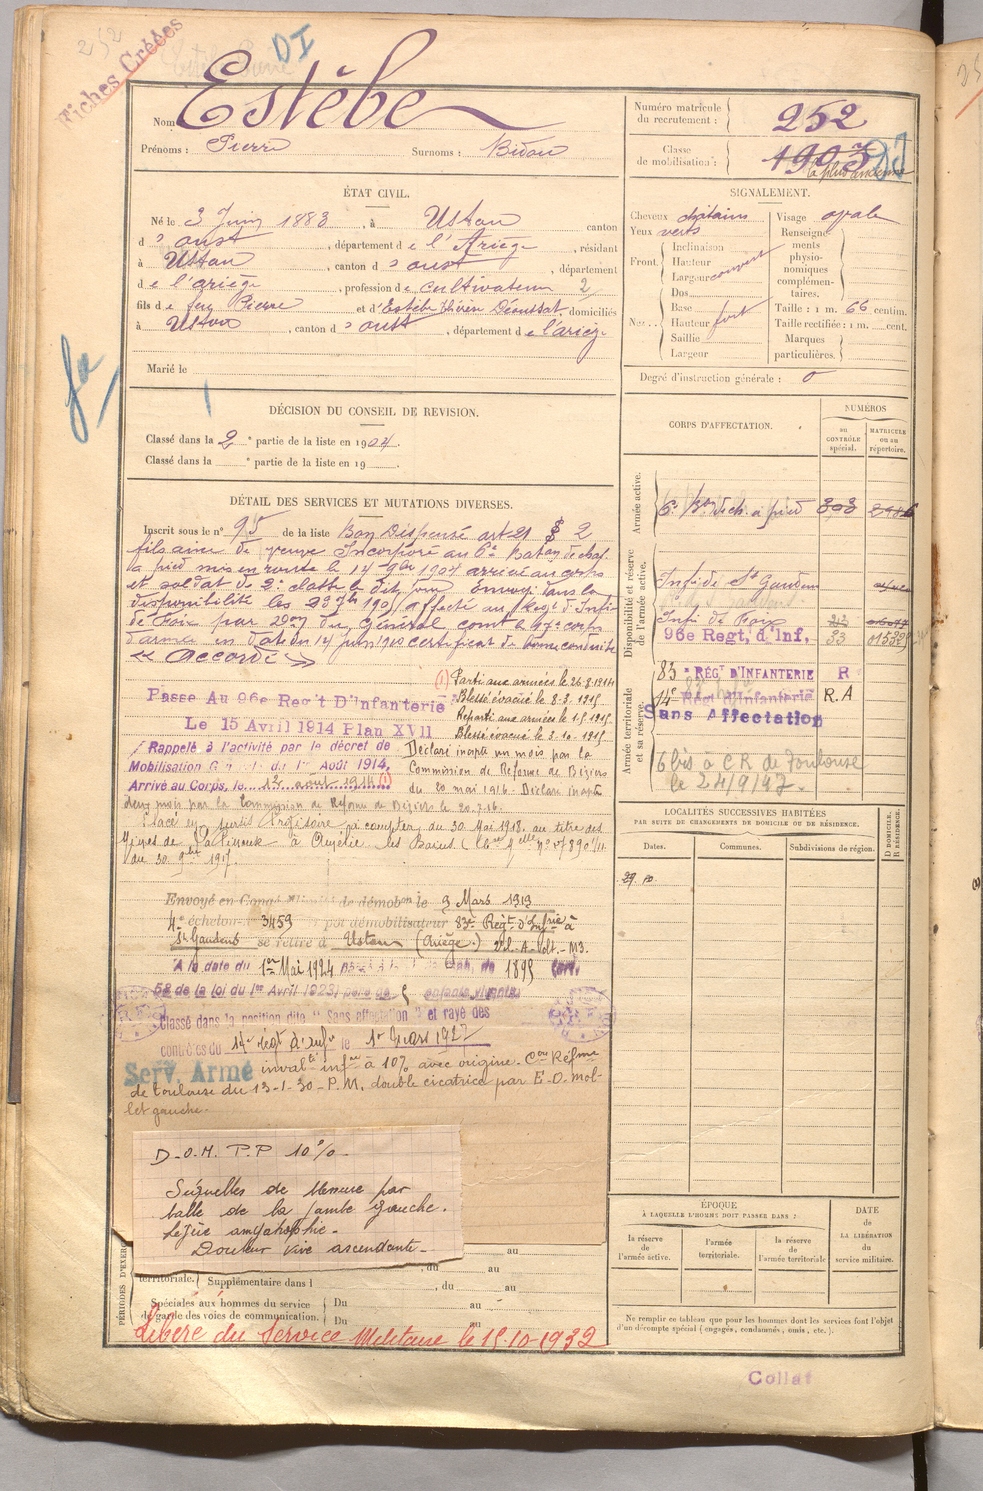 252
Fiches Créées
DI
Nom Estèbe
Prénoms : Pierre Surnoms : Bidaou
Numéro matricule du recrutement : 252
Classe de mobilisation : 1903
la plus ancienne
ÉTAT CIVIL.
Né le 3 Juin 1883, à Ustou canton
d'oust, département de l'Ariège, résidant
à Ustou, canton d'oust, département
de l'ariège, profession de cultivateur 2
fils de feu Pierre et d'Estèbe Thérèse Déoussat, domiciliés
à Ustou, canton d'oust, département de l'ariège
Marié le
SIGNALEMENT.
Cheveux châtains
Yeux verts
Front. Inclinaison
Hauteur
Largeur couvert
Nez... Dos
Base
Hauteur fort
Saillie
Largeur
Visage ovale
Renseignements physionomiques complémentaires.
Taille : 1 m. 66 centim.
Taille rectifiée : 1 m. cent.
Marques particulières.
Degré d'instruction générale : 0
fa
DÉCISION DU CONSEIL DE REVISION.
Classé dans la 2e partie de la liste en 1904.
Classé dans la e partie de la liste en 19
CORPS D'AFFECTATION.
NUMÉROS
au CONTRÔLE spécial.
MATRICULE ou au répertoire.
Armée active.
6e Bon de ch. à pied 303
Disponibilité et réserve de l'armée active.
Infie de St Gaudens
Infie de Foix
96e Regt, d'Inf. 33
Armée territoriale et sa réserve.
83e RÉGt D'INFANTERIE R
14e Régt d'Infanterie R.A
Sans Affectation
6 bis à CR de Toulouse
le 24/9/27.
DÉTAIL DES SERVICES ET MUTATIONS DIVERSES.
Inscrit sous le n° 95 de la liste Bon Dispensé art 21 § 2
fils ainé de veuve Incorporé au 6e Baton de chas.
à pied mis en route le 14 9bre 1904 arrivé au corps
et soldat de 2e classe le dit jour Envoyé dans la
disponibilité les 23 7bre 190 affecté au Regt d'Infie
de Foix par du Général comt le 17e corps
d'armée en date du 14 juin 1910 certificat de bonne conduite
« Accordé »
Passé Au 96e Reg't D'Infanterie
Le 15 Avril 1914 Plan XVII
(1) Parti aux armées le 26.8.1914
Blessé évacué le 8-3.1915
Reparti aux armées le 1.5.1915
Blessé évacué le 3-10-1915
Rappelé à l'activité par le décret de
Mobilisation Générale du 1er Août 1914.
Arrivé au Corps, le 12 août 1914 (1)
Déclaré inapte un mois par la
Commission de Réforme de Béziers
du 20 mai 1916. Déclaré inapte
deux mois par la Commission de Réforme de Béziers le 20.7.16.
Placé en sursis à compter du 30 Mai 1918. au titre des
Mines de à Amélie les Bains.
du 30. 9bre 1917.
Envoyé en Congé illimité de démobon le 9 Mars 1919
4e échelon n° 3459 dépôt démobilisateur 83e Régt d'Infrie à
St Gaudens se retire à Ustou (Ariège)
A la date du 1er Mai 1924 passé à la Cl. de mob. de 1895 (art.
58 de la loi du 1er Avril 1923) père de 5 enfants vivants
Classé dans la position dite "Sans affectation" et rayé des
contrôles du 14e régt d'infie le 1er Mars 1927
Serv. Armé invalté infre à 10% avec origine. Con Réforme
de Toulouse du 13-1-30 - P.M. double cicatrice par E.O. mol-
let gauche.
D-O-M. P.P 10%-
Séquelles de blessure par
balle de la jambe gauche.
Légère amyotrophie.
Douleur vive ascendante-
PÉRIODES D'EXERC
au
territoriale. Supplémentaire dans l , du au
, du au
Spéciales aux hommes du service de garde des voies de communication. Du au
Du au
Libéré du Service Militaire le 15-10-1932
LOCALITÉS SUCCESSIVES HABITÉES
PAR SUITE DE CHANGEMENTS DE DOMICILE OU DE RÉSIDENCE.
Dates. Communes. Subdivisions de région. D DOMICILE. R RÉSIDENCE.
ÉPOQUE
À LAQUELLE L'HOMME DOIT PASSER DANS :
la réserve de l'armée active.
l'armée territoriale.
la réserve de l'armée territoriale
DATE de LA LIBÉRATION du service militaire.
Ne pas remplir ce tableau que pour les hommes dont les services font l'objet
d'un décompte spécial (engagés, condamnés, omis, etc.).
Collat